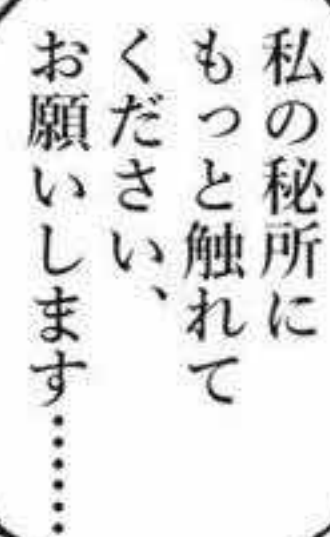 私の秘所に
もっと触れて
ください、
お願いします……